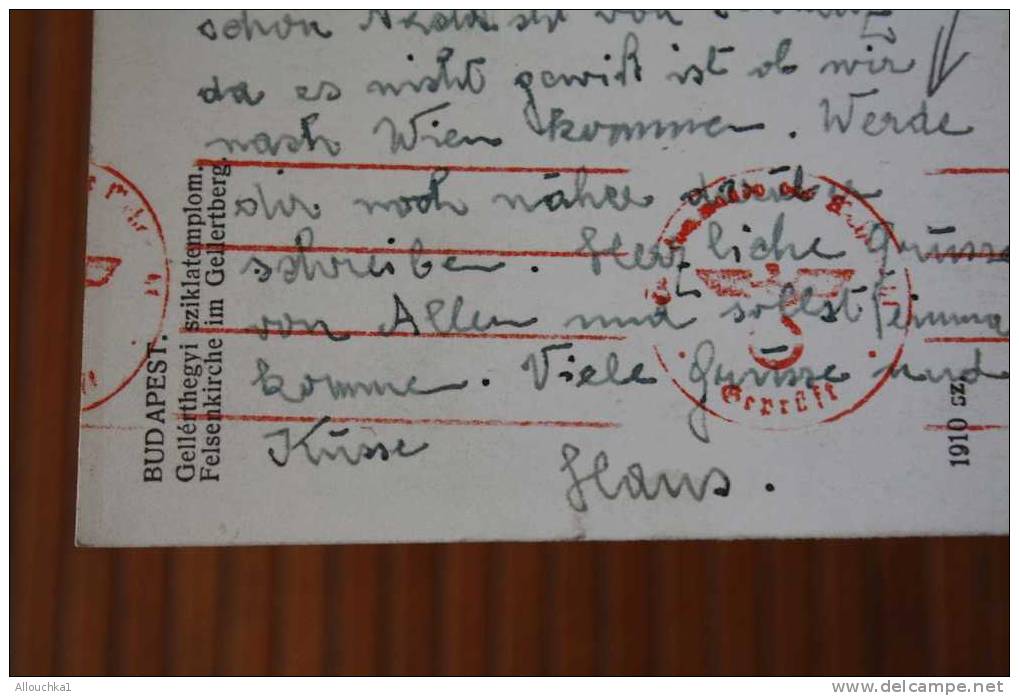 schon
da es nicht gewiß ist ob wir
nach Wien kommen. Werde
dir noch näher darüber
schreiben. Herzliche Grüsse
von Allen und sollst
komme. Viele Grüsse und
Küsse
Hans.
BUDAPEST.
Gellérthegyi sziklatemplom.
Felsenkirche im Gellertberg.
Geprüft
1910 sz
Allouchka1
delcampe.net